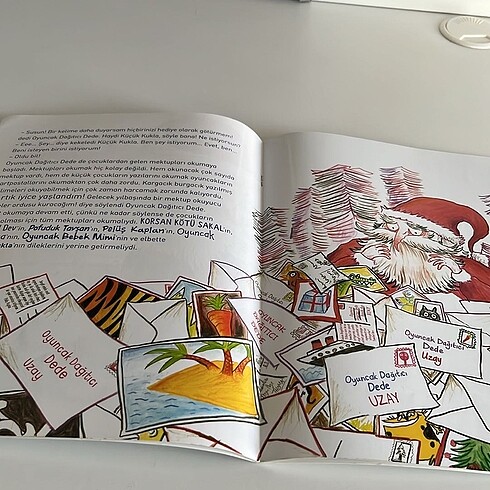 – Susun! Bir kelime daha duyarsam hiçbirinizi hediye olarak götürmem!
dedi Oyuncak Dağıtıcı Dede. Haydi Küçük Kukla, söyle bana! Ne istiyorsun?
– Eee... Şey... diye kekeledi Küçük Kukla. Ben şey istiyorum... Evet, ben...
Beni isteyen birini istiyorum!
– Oldu bil!
Oyuncak Dağıtıcı Dede de çocuklardan gelen mektupları okumaya
başladı. Mektupları okumak hiç kolay değildi. Hem okunacak çok sayıda
mektup vardı, hem de küçük çocukların yazılarını okumak oyuncakların
kartpostallarını okumaktan çok daha zordu. Kargacık burgacık yazılmış
okuyabilmek için çok zaman harcamak zorunda kalıyordu.
artık iyice yaşlandım! Gelecek yılbaşında bir mektup okuyucu
ordusu kurmalıyım! diye söylendi Oyuncak Dağıtıcı Dede.
okumaya devam etti, çünkü ne kadar söylense de çocukların
olması için tüm mektupları okumalıydı. KORSAN KÖTÜ SAKAL'ın,
Dev'in, Pofuduk Tavşan'ın, Peluş Kaplan'ın, Oyuncak
Oyuncak Bebek Mimi'nin ve elbette
Kukla'nın dileklerini yerine getirmeliydi.
Oyuncak Dağıtıcı
Dede
Uzay
OYUNCAK
DAĞITICI
Oyuncak Dağıtıcı
Dede
Uzay
Oyuncak Dağıtıcı
Dede
UZAY